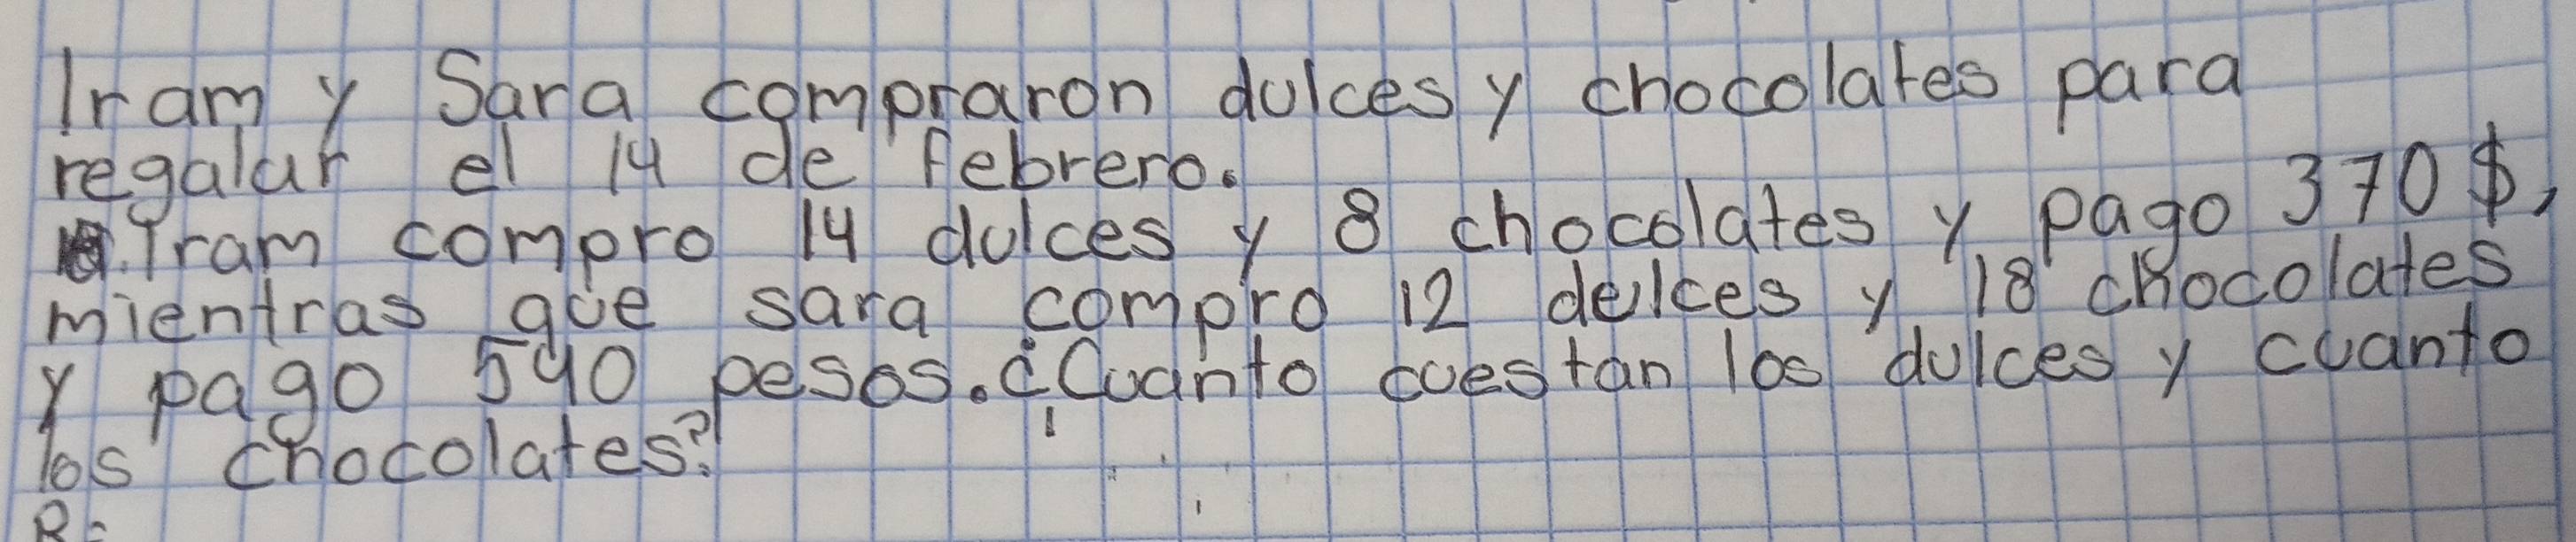 Iram y Sara compraron dulces y chocolates para
regalar el 14 de febrero.
Iram compro 14 dulces y 8 chocolates y pago 370$,
mientras que sara compro 12 dulces y 18 chocolates
y pago 540 pesos. ¿Cuanto cuestan los dulces y cuanto
los chocolates?
R=